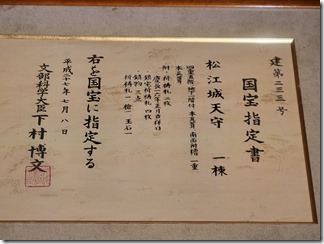 建第二三三号
国宝指定書
松江城天守 一棟
四重五階、地下階付、本瓦葺、南面附櫓 一重
本瓦葺
附 祈祷札 二枚
慶長十六年正月吉祥日
鎮宅祈祷札 四枚
鎮物 三点
祈祷札 一 槍 一 玉石 一
右を国宝に指定する
平成二十七年七月八日
文部科学大臣 下村博文